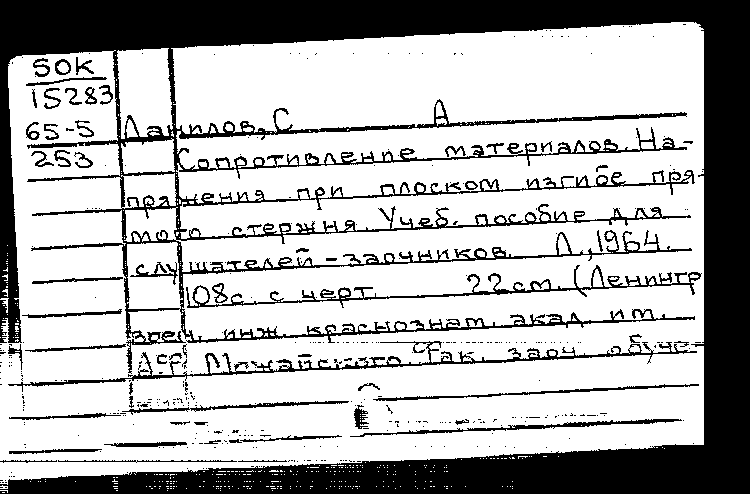 SOK
IS283
65-5 Данилов, С А
253 Сопротивление материалов. На-
пряжения при плоском изгибе пря-
мого стержня. Учеб. пособие для
слушателей-заочников. Л., 1964.
108с. с черт. 22см. (Ленингр
воен. инж. краснознам. акад. им.
АФ Можайского. Фак. заоч. обуче-